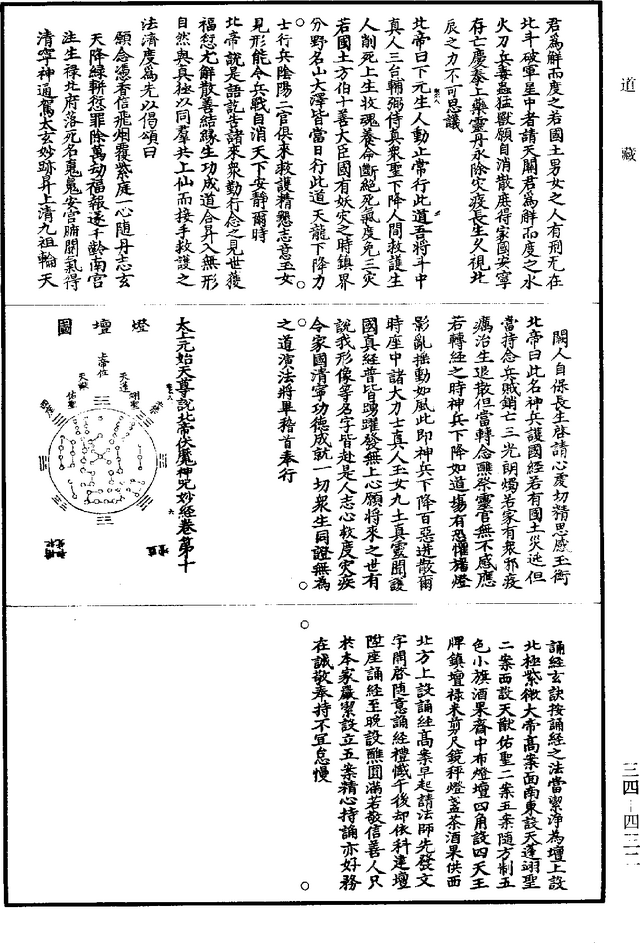 道藏
君為解而度之若國土男女之人有刑厄在
北斗破軍星中者請天關君為解而度之水
火刀兵毒蟲猛獸願自消散庶得家國安寧
存亡慶泰上藥靈丹永除灾疫長生久視北
辰之力不可思議
北帝曰下元生人動止常行此道吾將斗中
真人三台輔弼侍真衆聖下降人間救護生
人削死上生救魂養命斷絕死氣度免三灾
若國土方伯十善大臣國有妖灾之時鎮界
分野名山大澤皆當日行此道天龍下降力
士行兵陰陽二官俱來救護精懇志意玉女
見形能令兵戰自消天下安靜爾時
北帝說是語訖告諸來衆勤行念之見世獲
福愆尤解散善結緣生功成道合昇入無形
自然與真極以同羣共上仙而接手救護之
法濟度為先以偈頌曰
願念憑香信飛烟覆紫庭一心隨丹志玄
天降綠輧愆罪除萬劫福報遂千齡南宮
注生祿北府落死名蒐蒐安宮腑關氣得
清寧神通駕太玄妙跡昇上清九祖輪天
關人自保長生啓請心處切精思感玉衡
北帝曰此名神兵護國經若有國土災迍但
當持念兵賊銷亡三光朗燭若家有衆邪疫
癘治生退散但當轉念醮祭靈官無不感應
若轉經之時神兵下降如道場有恐懼旛燈
影亂搖動如風此即神兵下降百惡迸散爾
時座中諸大力士真人玉女九土真靈聞護
國真經普皆踴躍發無上心願將來之世有
說我形像等名字皆赴是人志心救度灾疾
令家國清寧功德成就一切衆生同證無為
之道演法將畢稽首奉行
太上元始天尊說北帝伏魔神呪妙經卷第十
燈壇圖
上帝位
天猷
天蓬
佑聖
翊聖
誦經玄訣按誦經之法當潔淨為壇上設
北極紫微大帝高案面南東設天蓬翊聖
二案西設天猷佑聖二案五案隨方制五
色小旗酒果齋中布燈壇四角設四天王
牌鎮壇祿米剪尺鏡秤燈盞茶酒果供西
北方上設誦經高案早起請法師先發文
字開啓隨意誦經禮懺午後却依科建壇
陞座誦經至晚設醮圓滿若敬信善人只
於本家嚴潔設立五案精心持誦亦好務
在誠敬奉持不宜怠慢
三四—四三二